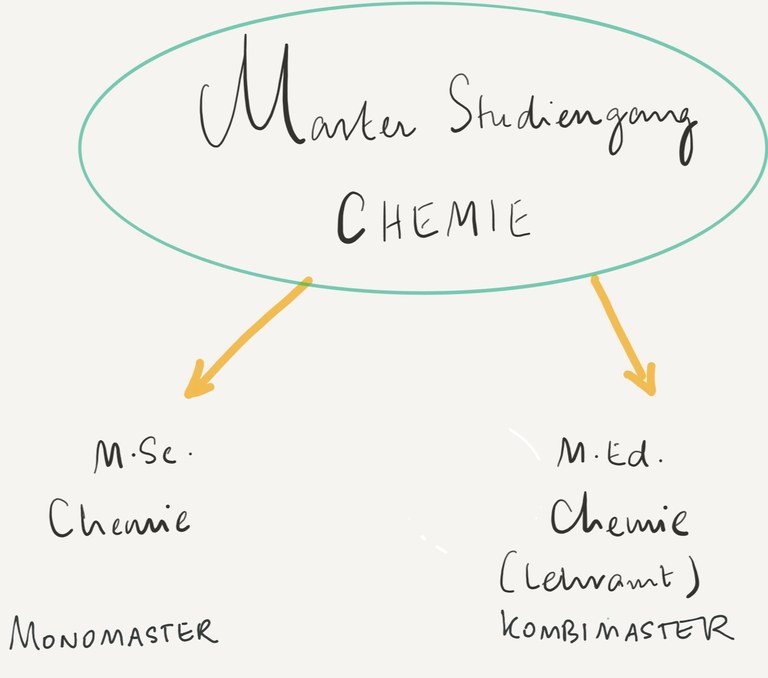 Master Studiengang
CHEMIE
M.Sc.
Chemie
MONOMASTER
M.Ed.
Chemie
(Lehramt)
KOMBIMASTER